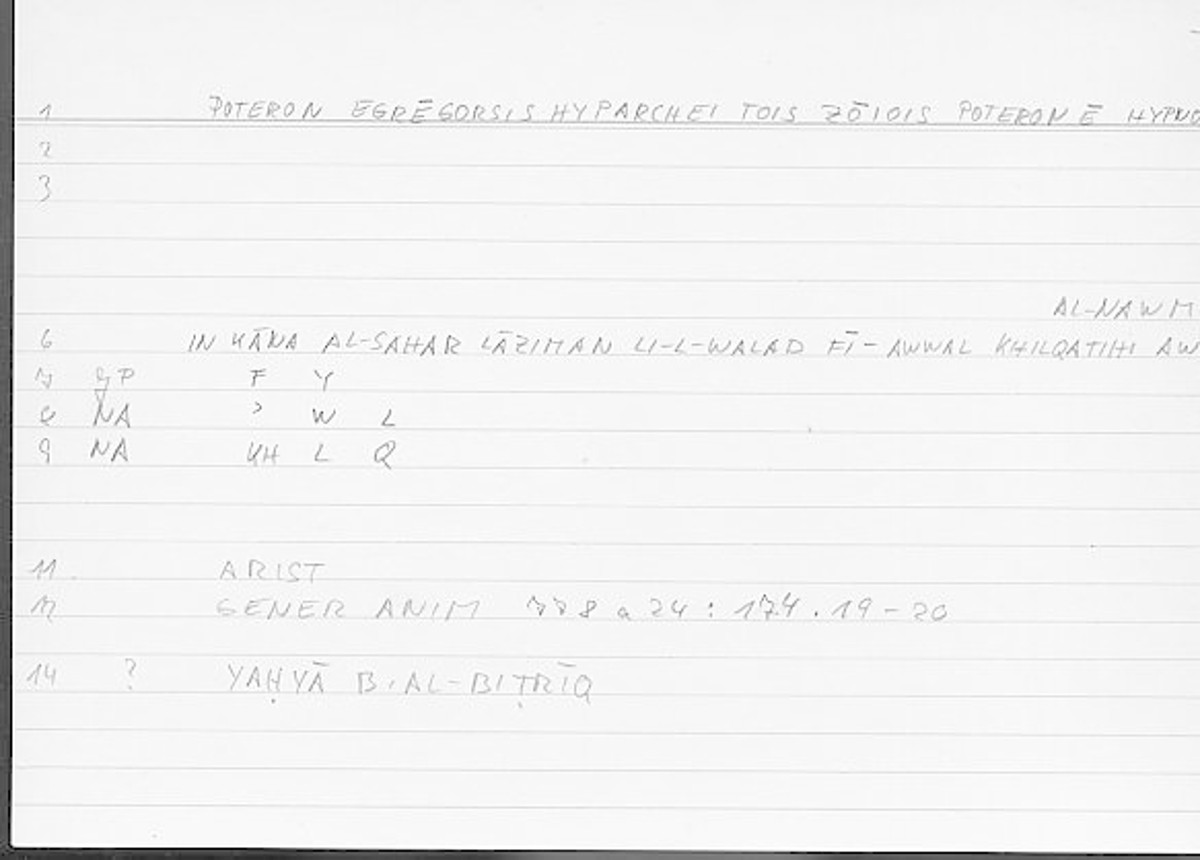 1 POTERON EGRĒGORSIS HYPARCHEI TOIS ZŌIOIS POTERON Ē HYPNO
2
3
AL-NAWM
6 IN KĀNA AL-SAHAR LĀZIMAN LI-L-WALAD FĪ-AWWAL KHILQATIHI AW
7 GP F Y
8 NA ʾ W L
9 NA KH L Q
11 ARIST
12 GENER ANIM 778 a 24 : 174.19-20
14 ? YAḤYĀ B. AL-BIṬRĪQ